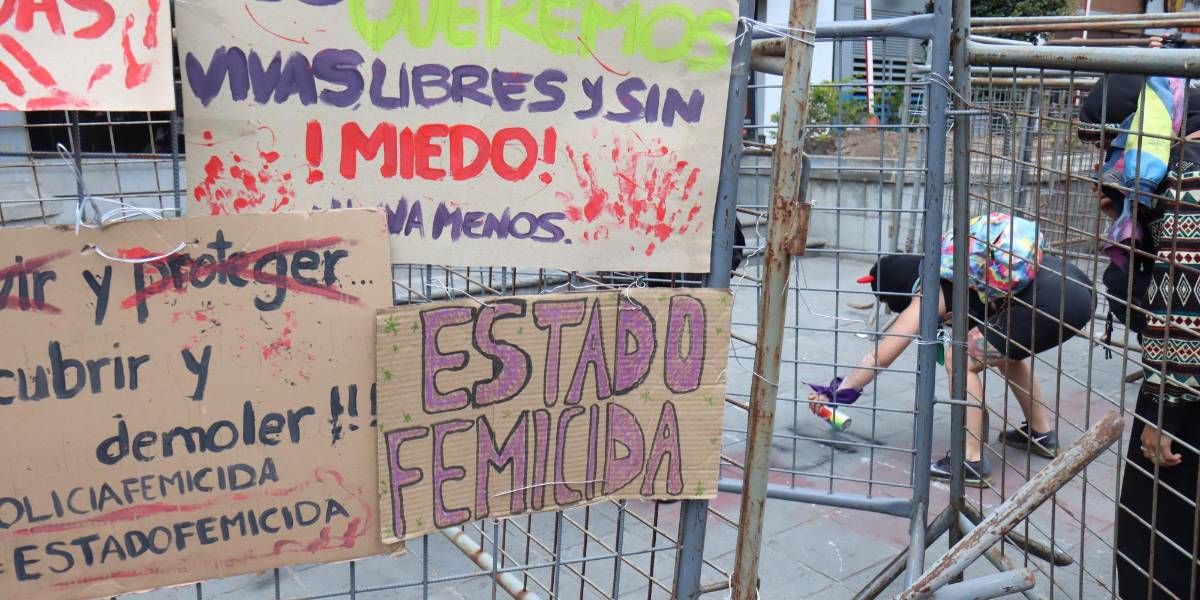 QUEREMOS
VIVAS, LIBRES Y SIN
¡MIEDO!
MENOS.
y proteger...
cubrir y
demoler!!!
OLICIAFEMICIDA
#ESTADOFEMICIDA
ESTADO
FEMICIDA